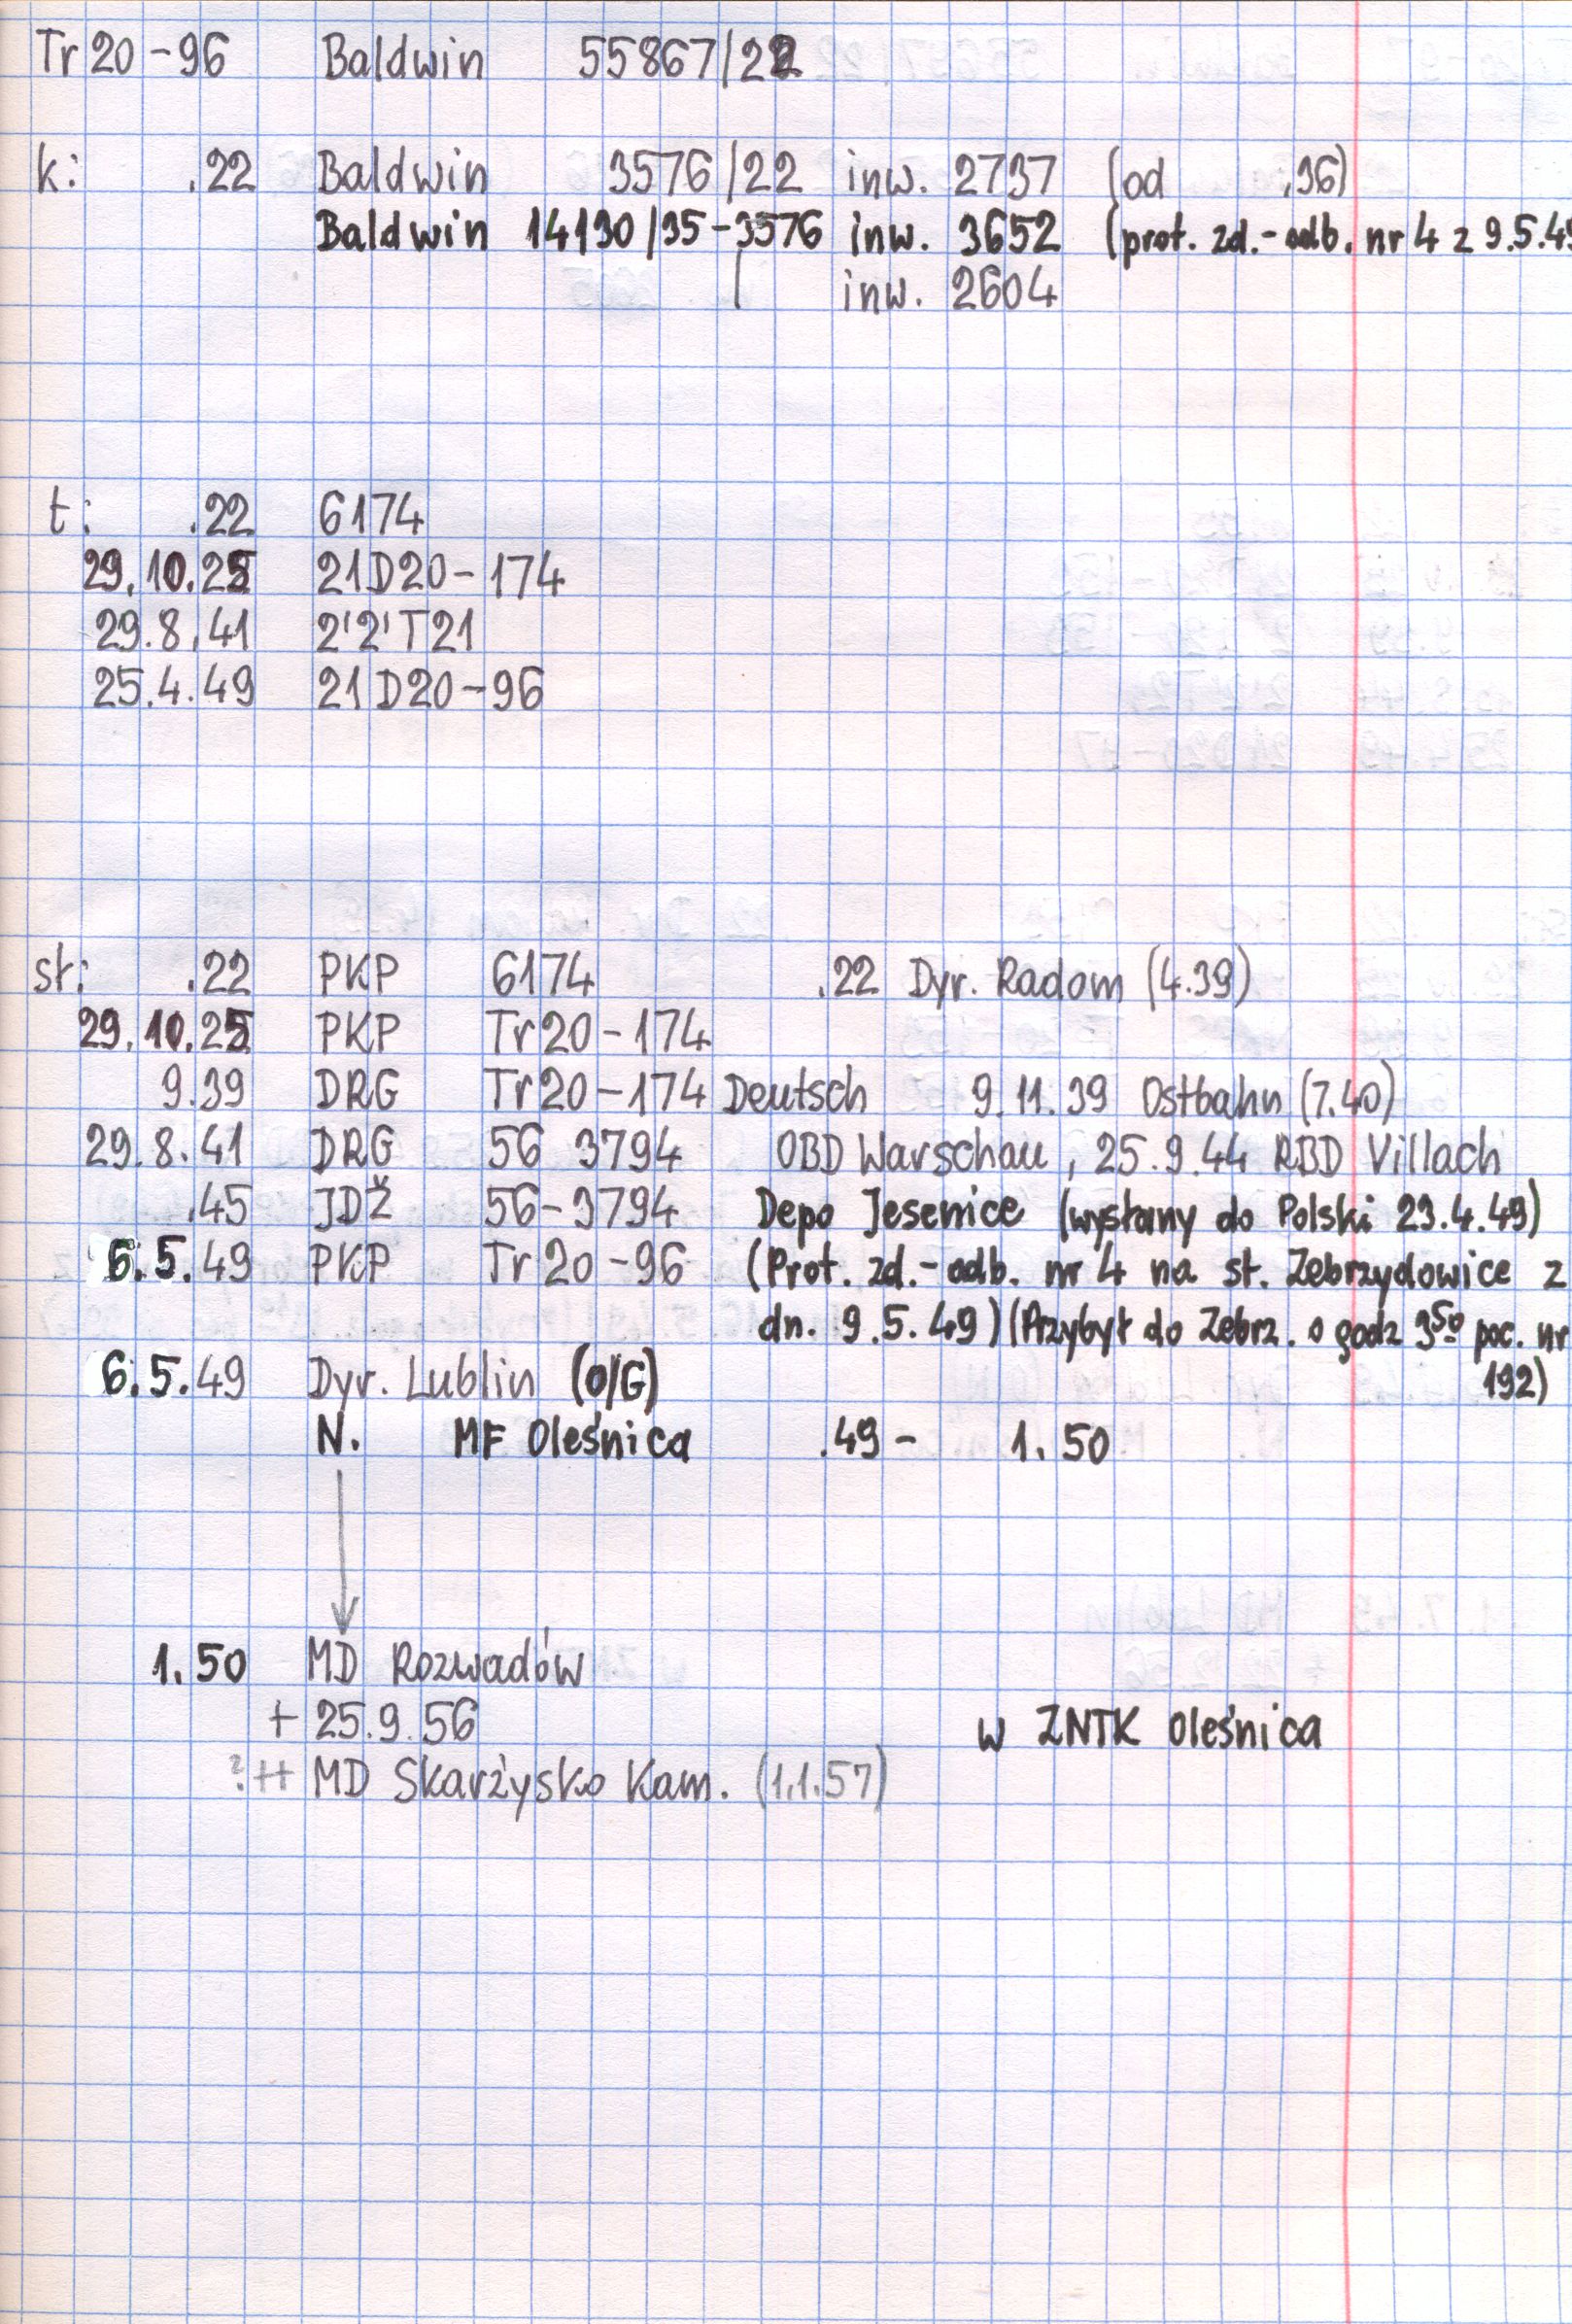 Tr 20-96 Baldwin 55867/22
k: .22 Baldwin 3576/22 inw. 2737 (od .36)
Baldwin 14130/35-3576 inw. 3652 (prot. zd.-odb. nr 4 z 9.5.49
inw. 2604
t: .22 6174
29.10.25 21D20-174
29.8.41 2'2'T21
25.4.49 21D20-96
st: .22 PKP 6174 .22 Dyr. Radom (4.39)
29.10.25 PKP Tr 20-174
9.39 DRG Tr 20-174 Deutsch 9.11.39 Ostbahn (7.40)
29.8.41 DRG 56 3794 OBD Warschau, 25.9.44 RBD Villach
.45 JDŽ 56-3794 Depo Jesenice (wysłany do Polski 23.4.49)
6.5.49 PKP Tr 20-96 (Prot. zd.-odb. nr 4 na st. Zebrzydowice z
dn. 9.5.49) (Przybył do Zebrz. o godz 3⁵⁰ poc. nr
192)
6.5.49 Dyr. Lublin (O/G)
N. MF Oleśnica .49 - 1.50
1.50 MD Rozwadów
+ 25.9.56 w ZNTK Oleśnica
?++ MD Skarżysko Kam. (1.1.57)